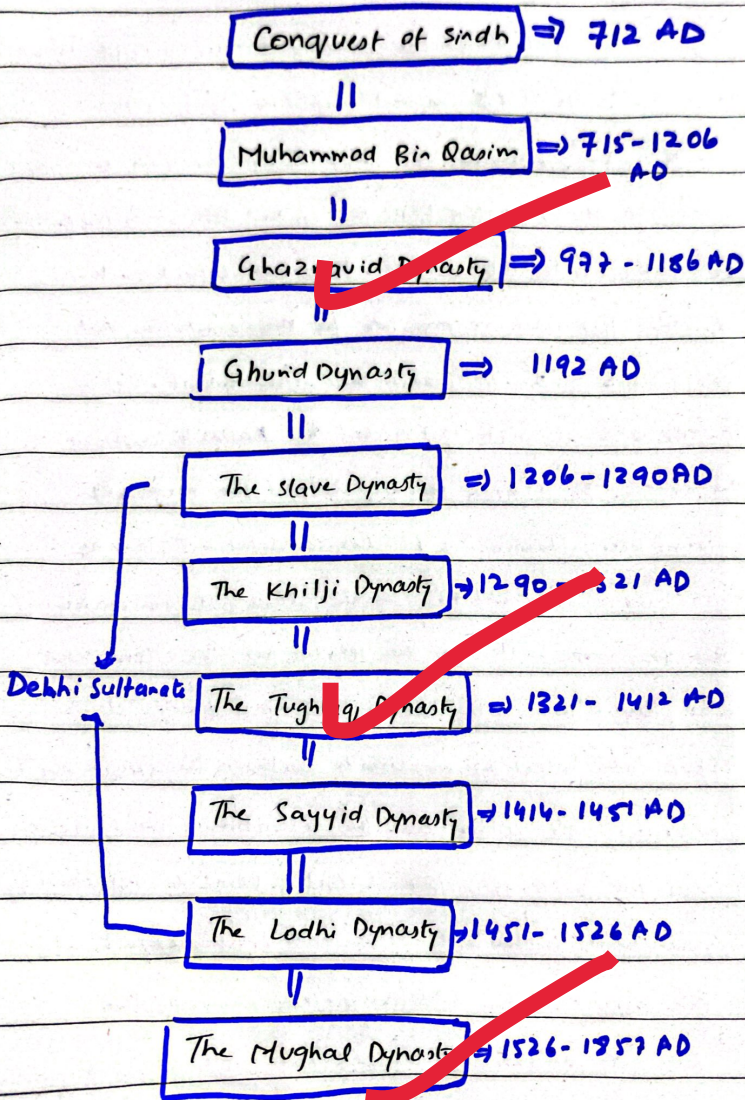 Conquest of Sindh ⇒ 712 AD
Muhammad Bin Qasim ⇒ 715-1206
AD
Ghaznavid Dynasty ⇒ 977-1186 AD
Ghurid Dynasty ⇒ 1192 AD
The slave Dynasty ⇒ 1206-1290 AD
The Khilji Dynasty → 1290-1321 AD
Delhi Sultanate
The Tughlaq Dynasty ⇒ 1321-1412 AD
The Sayyid Dynasty ⇒ 1414-1451 AD
The Lodhi Dynasty → 1451-1526 AD
The Mughal Dynasty ⇒ 1526-1857 AD